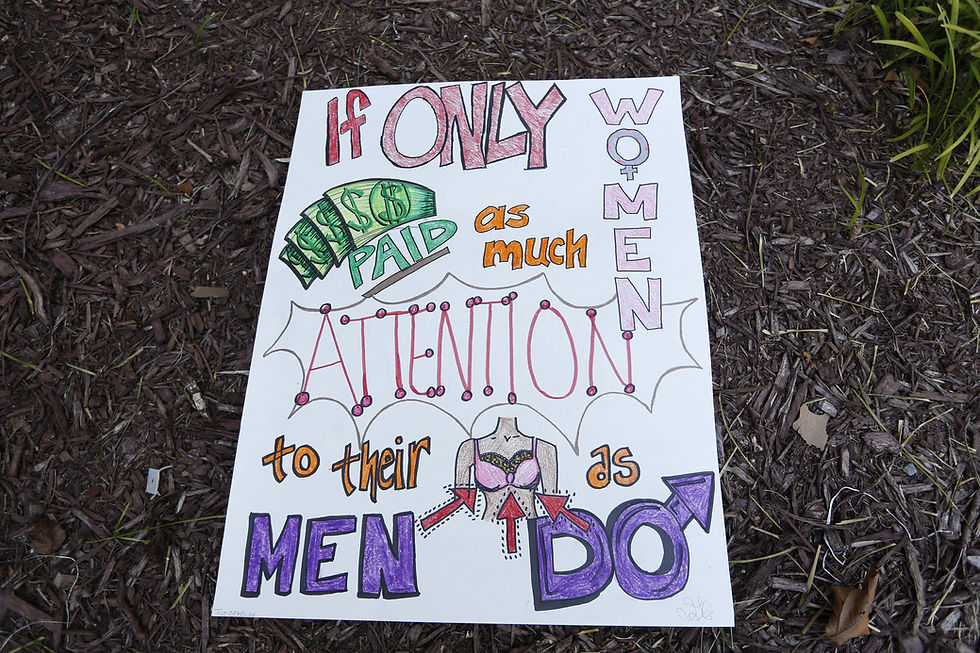 If ONLY
WOMEN
$ $ $ $
PAID
as
much
ATTENTION
to their
as
MEN DO